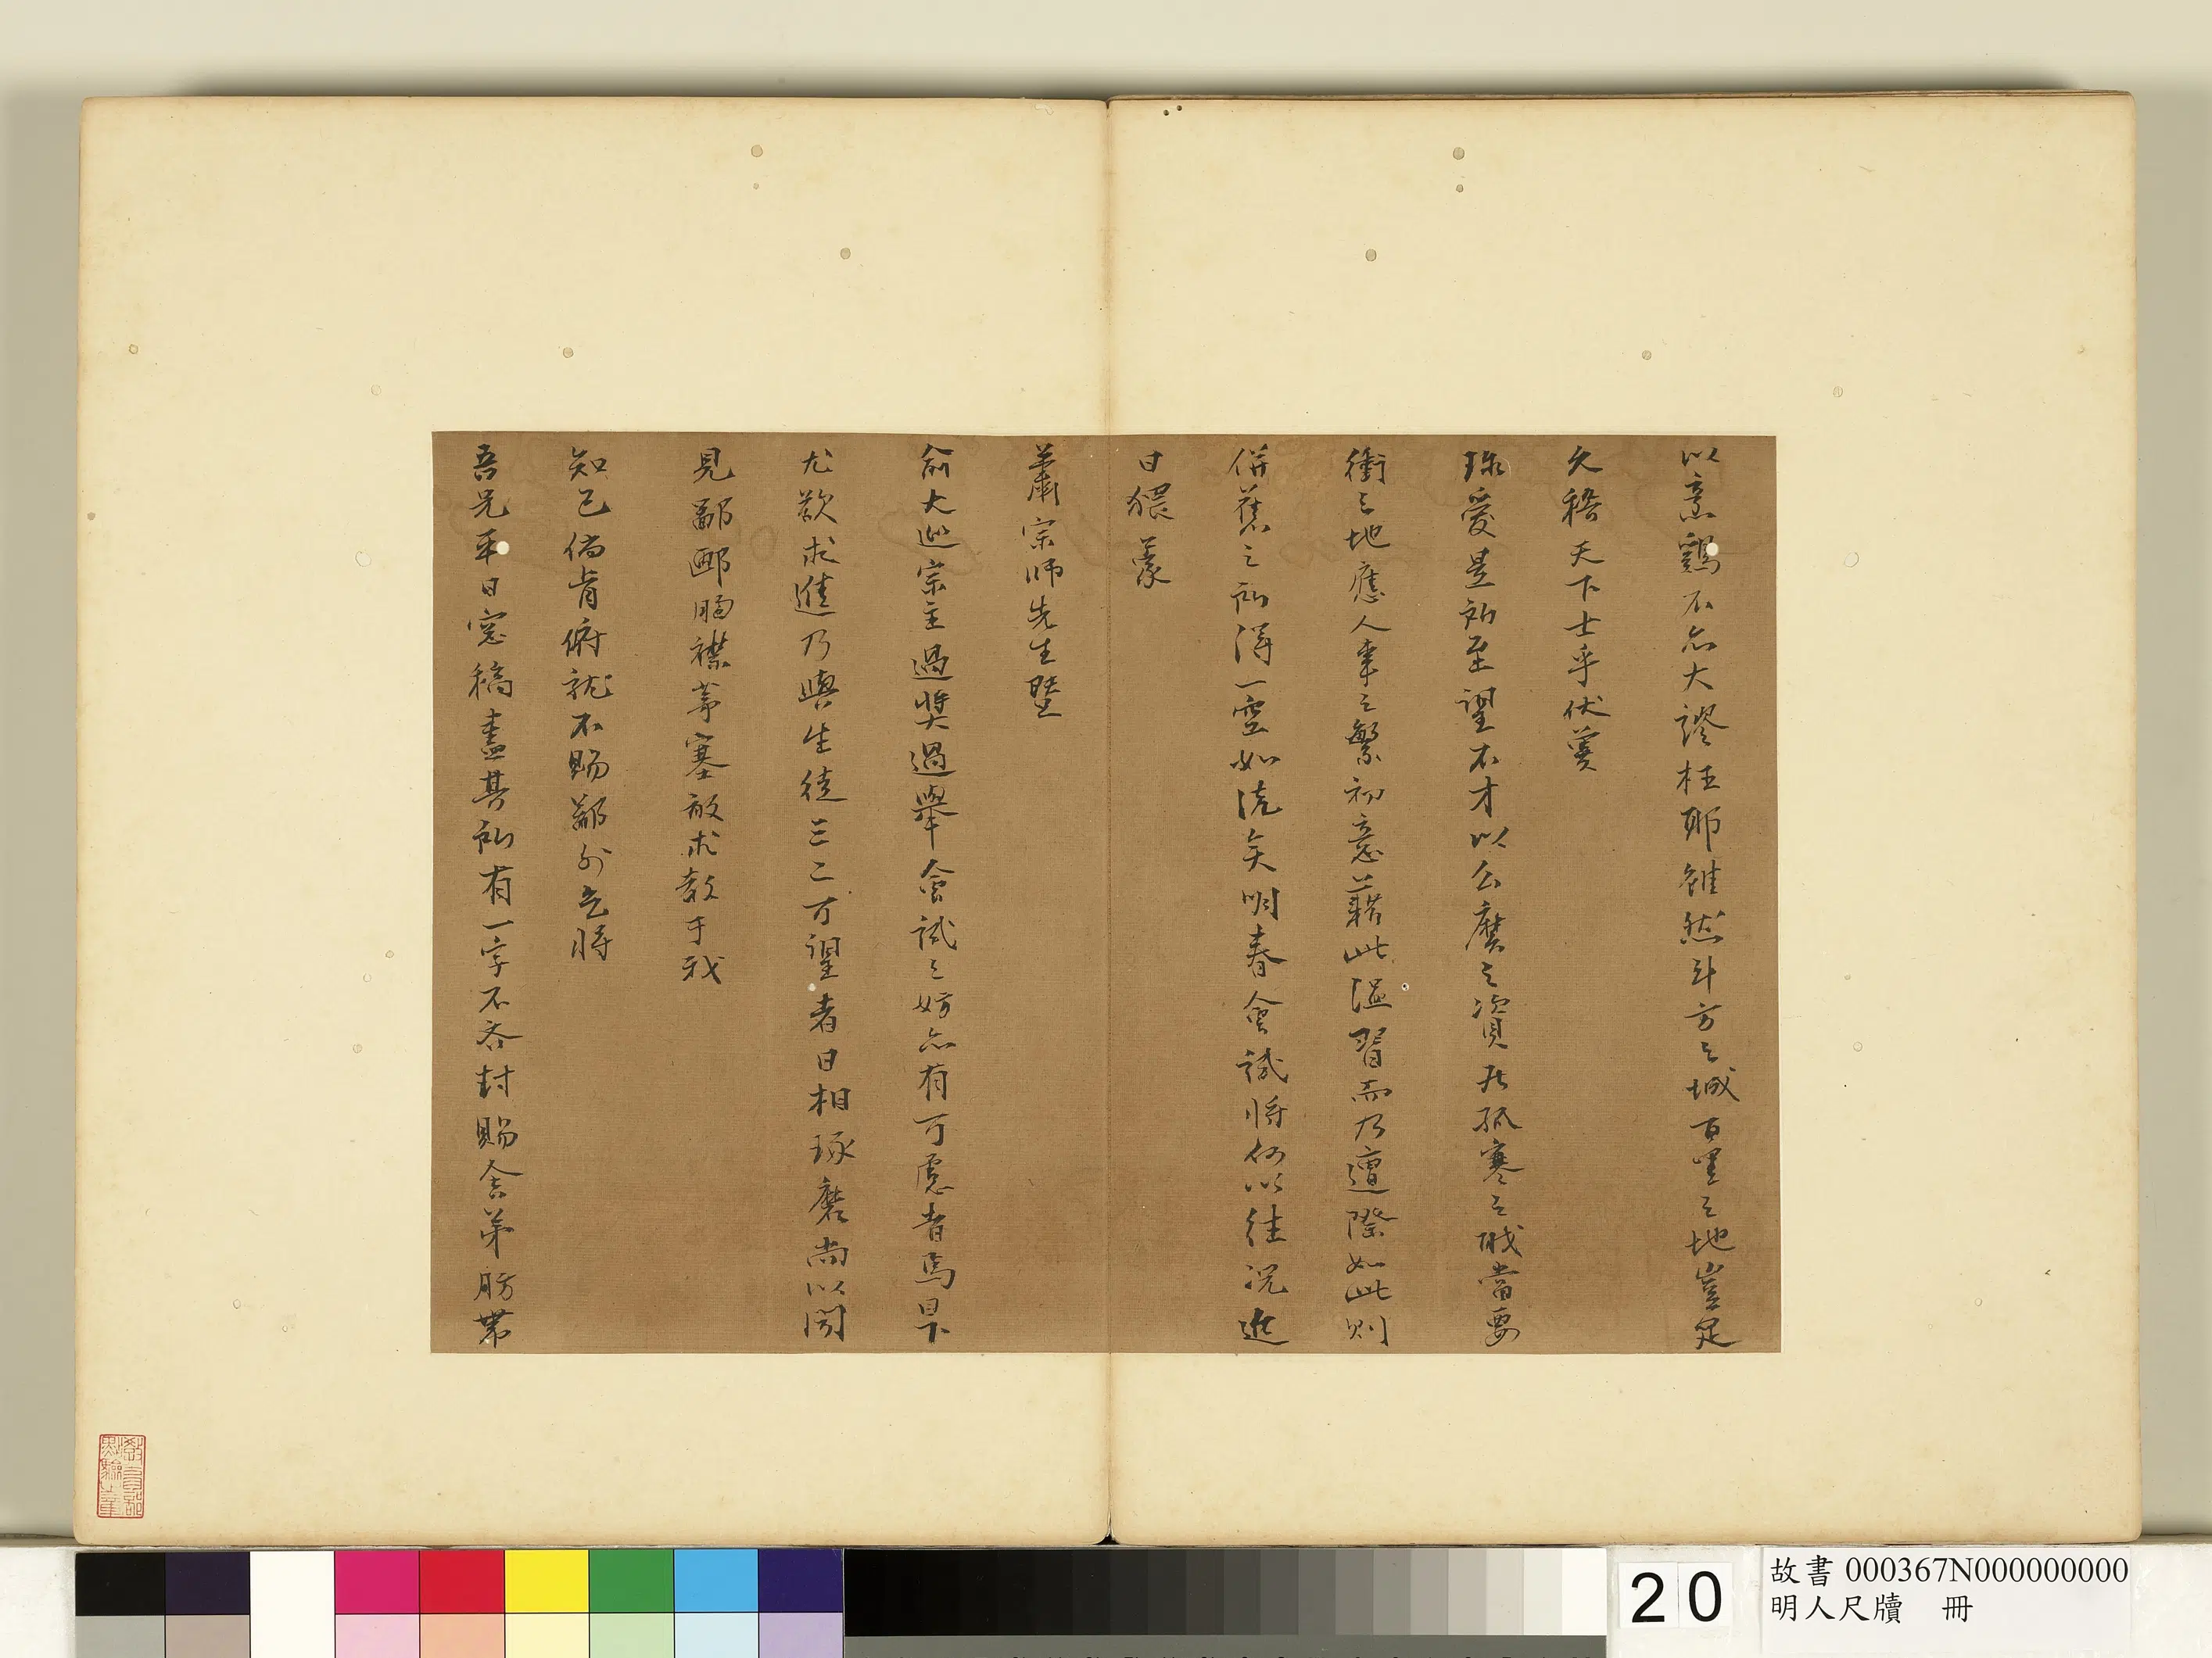 以烹鷄不亦大謬枉耶雖然斗方之城百里之地豈足
久稽天下士乎伏冀
珍愛是所至望不才以公麽之資居孤寒之職當要
衝之地應人事之繁初意藉此溫習而乃遭際如此則
併舊之所得一空如洗矣明春會試將何以往況進
日猥蒙
蕭宗師先生暨
俞大巡宗主過獎過舉會試之妨亦有可慮者焉是下
尤欲求進乃與生徒三二可望者日相琢磨尚以聞
見鄙 胸襟茅塞敢求教于我
知己倘肯俯就不賜鄙外乞將
吾兄平日窓稿盡其所有一字不吝封賜舍弟肪帶
20
故書 000367N000000000
明人尺牘 冊